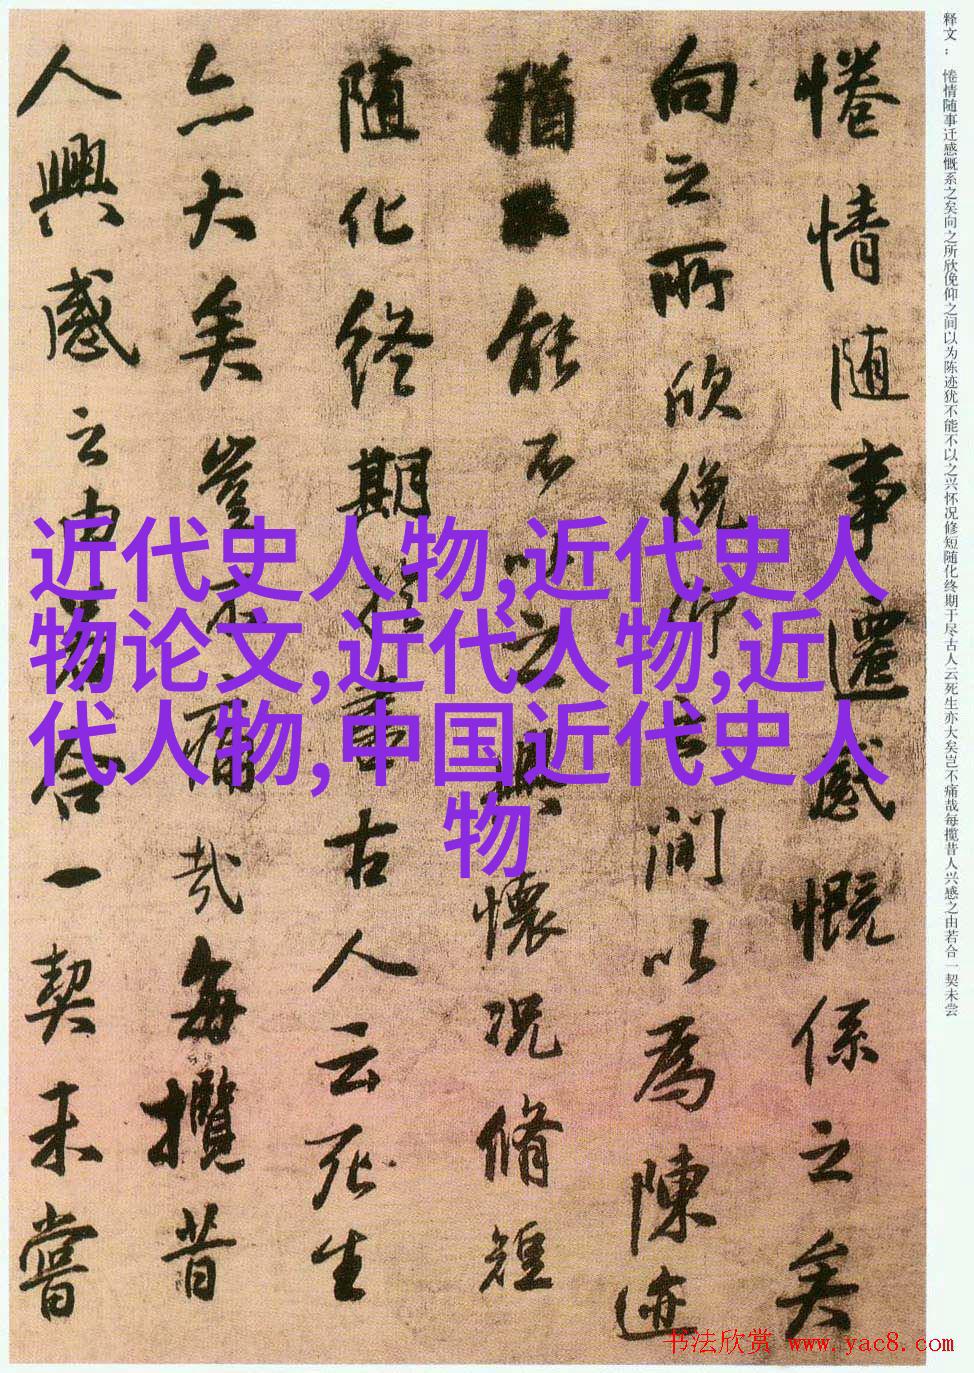 释文： 惓情随事迁感慨系之矣向之所欣俛仰之间以为陈迹犹不能不以之兴怀况修短随化终期于尽古人云死生亦大矣岂不痛哉每揽昔人兴感之由若合一契未尝
惓情随事遷感慨係之矣
向之所欣俛仰之间以為陳迹
猶不能不以之興懷況脩短
随化終期於盡古人云死生
亦大矣豈不痛哉每攬昔
人興感之由若合一契未嘗
近代史人物,近代史人
物论文,近代人物,近
代人物,中国近代史人
物
书法欣赏 www.yac8.com